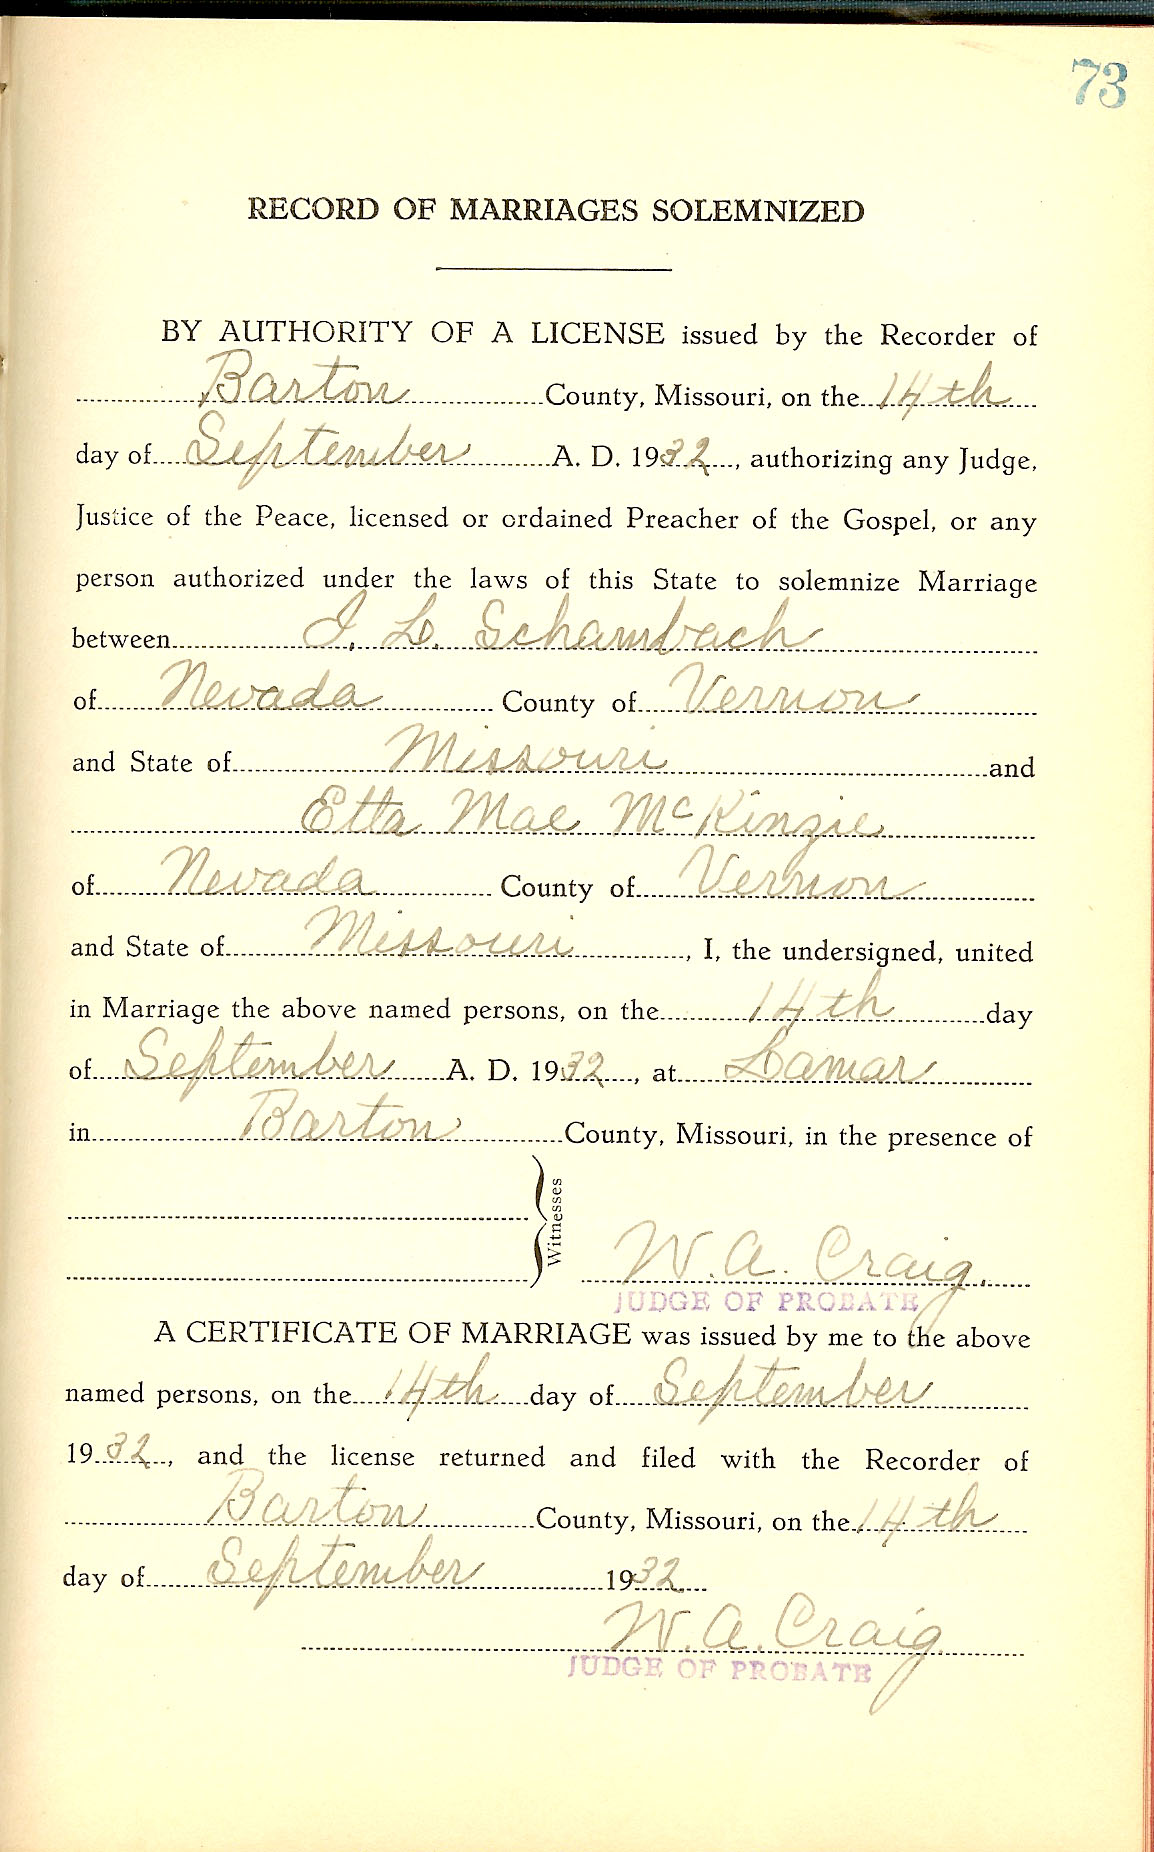 73
RECORD OF MARRIAGES SOLEMNIZED
BY AUTHORITY OF A LICENSE issued by the Recorder of
Barton County, Missouri, on the 14th
day of September A. D. 1932, authorizing any Judge,
Justice of the Peace, licensed or ordained Preacher of the Gospel, or any
person authorized under the laws of this State to solemnize Marriage
between I. L. Schambach
of Nevada County of Vernon
and State of Missouri and
Etta Mae McKinzie
of Nevada County of Vernon
and State of Missouri, I, the undersigned, united
in Marriage the above named persons, on the 14th day
of September A. D. 1932, at Lamar
in Barton County, Missouri, in the presence of
Witnesses
W. A. Craig.
JUDGE OF PROBATE
A CERTIFICATE OF MARRIAGE was issued by me to the above
named persons, on the 14th day of September
1932, and the license returned and filed with the Recorder of
Barton County, Missouri, on the 14th
day of September 1932
W. A. Craig
JUDGE OF PROBATE